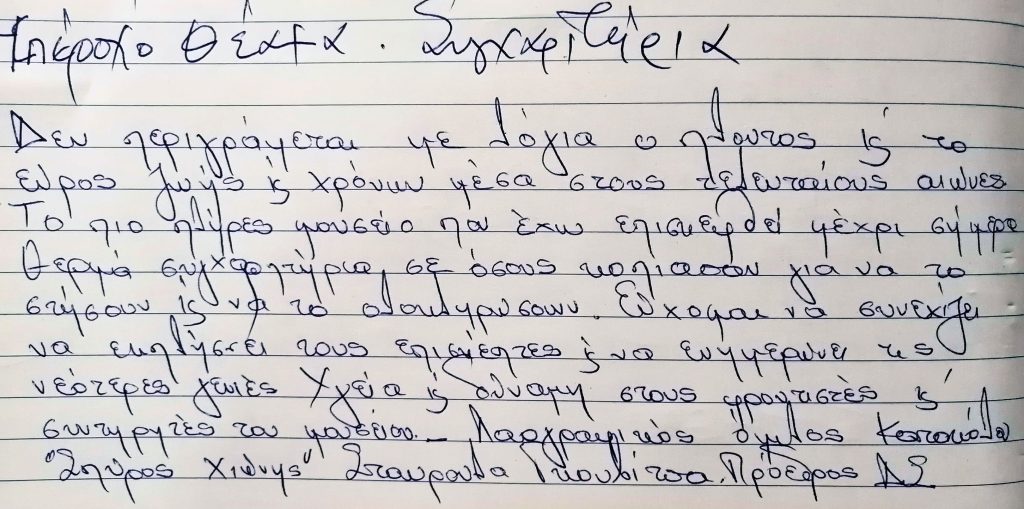 Υπέροχο Θέαμα. Συγχαρητήρια
Δεν περιγράφεται με λόγια ο πλούτος & το
εύρος ζωής & χρόνων μέσα στους τελευταίους αιώνες
Το πιο πλήρες μουσείο που έχω επισκεφθεί μέχρι σήμερα
Θερμά συγχαρητήρια, σε όσους κοπίασαν για να το
στήσουν & να το ολοκληρώσουν. Εύχομαι να συνεχίζει
να εκπλήσσει τους επισκέπτες & να ενημερώνει τις
νεότερες γενιές Υγεία & δύναμη στους φροντιστές &
συντηρητές του μουσείου._ Λαογραφικός όμιλος
"Σπύρος Χιώνης" Σταυρούλα Πρόεδρος ΔΣ